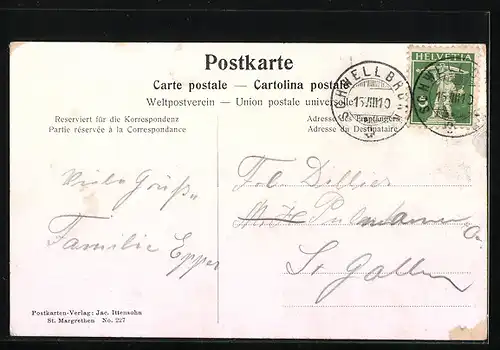 Postkarte
Carte postale — Cartolina postale
Weltpostverein — Union postale universelle
HELVETIA
SCHWELLBRUNN
Reserviert für die Korrespondenz
Partie réservée à la Correspondance
Adresse des Empfängers
Adresse du Destinataire
Viele Grüße
Familie Epper
St. Gallen
Postkarten-Verlag: Jac. Ittensohn
St. Margrethen No. 227